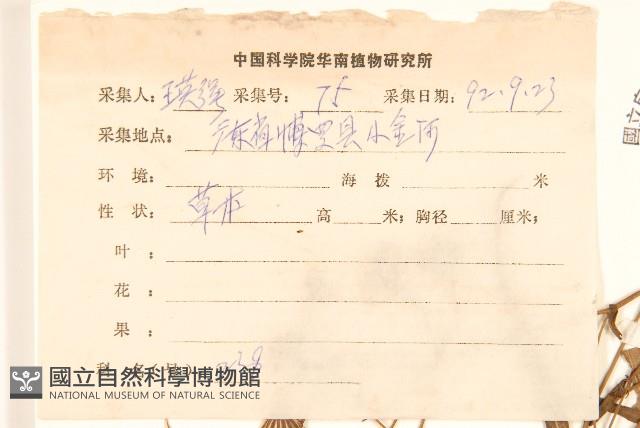 中国科学院华南植物研究所
采集人: 王英强 采集号: 75 采集日期: 92.9.23
采集地点: 广东省博罗县小金河
环 境: 海 拨 米
性 状: 草本 高 米; 胸径 厘米;
叶 :
花 :
果 :
科 名
國立自然科學博物館
NATIONAL MUSEUM OF NATURAL SCIENCE
國立